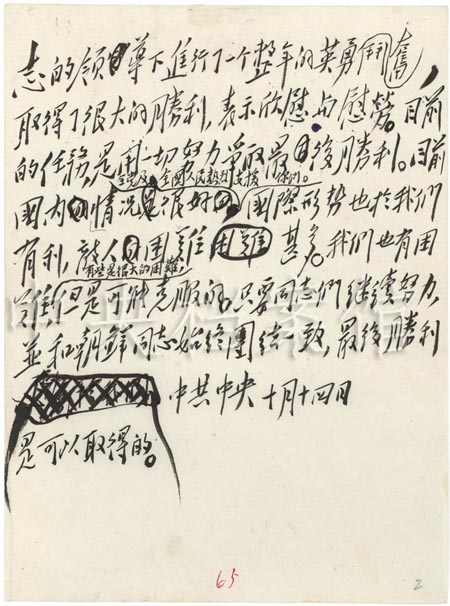 志的领导下進行了一个整年的英勇奮鬥，
取得了很大的勝利，表示欣慰与慰勞。目前
的任務，是用一切努力爭取最後勝利。目前
全党及全國人民熱烈支援你們。
國内情况是很好的，國際形势也於我們
有利，敵人困難甚多。我們也有困
有些是很大的困難，
難，但是可能克服的。只要同志們继續努力，
並和朝鲜同志始终團结一致，最後勝利
中共中央 十月十四日
是可以取得的。
中央档案馆
65
2